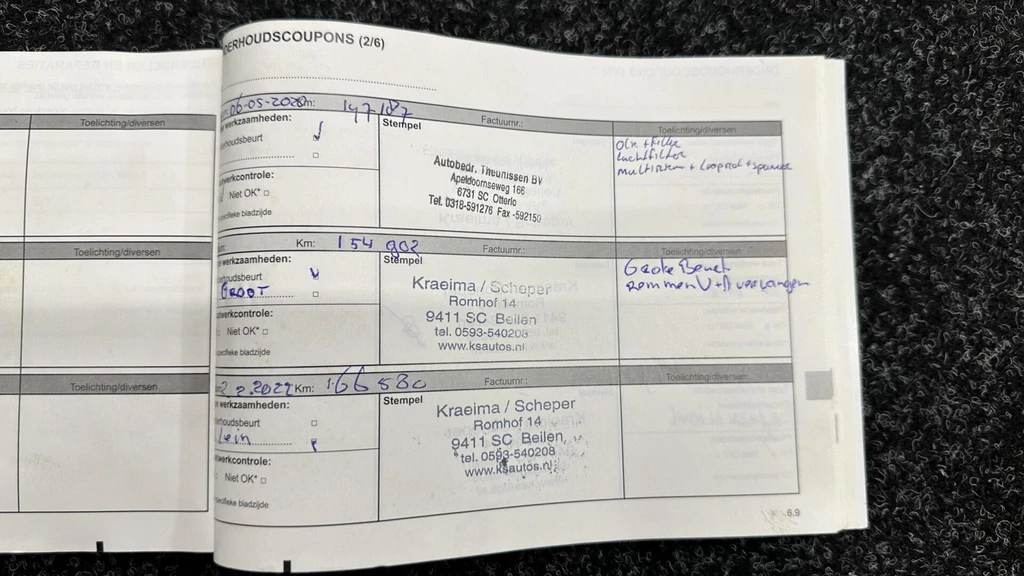 DERHOUDSCOUPONS (2/6)
06-05-2020 Km: 147187
werkzaamheden:
Stempel
Factuurnr.:
Toelichting/diversen
Toelichting/diversen
houdsbeurt
Olie + filter
Luchtfilter
multiriem + looprol + spanner
Autobedr. Theunissen BV
Apeldoornseweg 166
6731 SC Otterlo
Tel. 0318-591276 Fax -592150
werkcontrole:
Niet OK*
specifieke bladzijde
Km: 154 902
Factuurnr.:
Toelichting/diversen
Toelichting/diversen
werkzaamheden:
Stempel
houdsbeurt
GROOT
Grote Beurt
remmen V+A vervangen
Kraeima / Scheper
Romhof 14
9411 SC Beilen
tel. 0593-540208
www.ksautos.nl
werkcontrole:
Niet OK*
specifieke bladzijde
2.2022 Km: 166 580
Factuurnr.:
Toelichting/diversen
Toelichting/diversen
werkzaamheden:
Stempel
houdsbeurt
Klein
Kraeima / Scheper
Romhof 14
9411 SC Beilen
tel. 0593-540208
www.ksautos.nl
werkcontrole:
Niet OK*
specifieke bladzijde
6.9